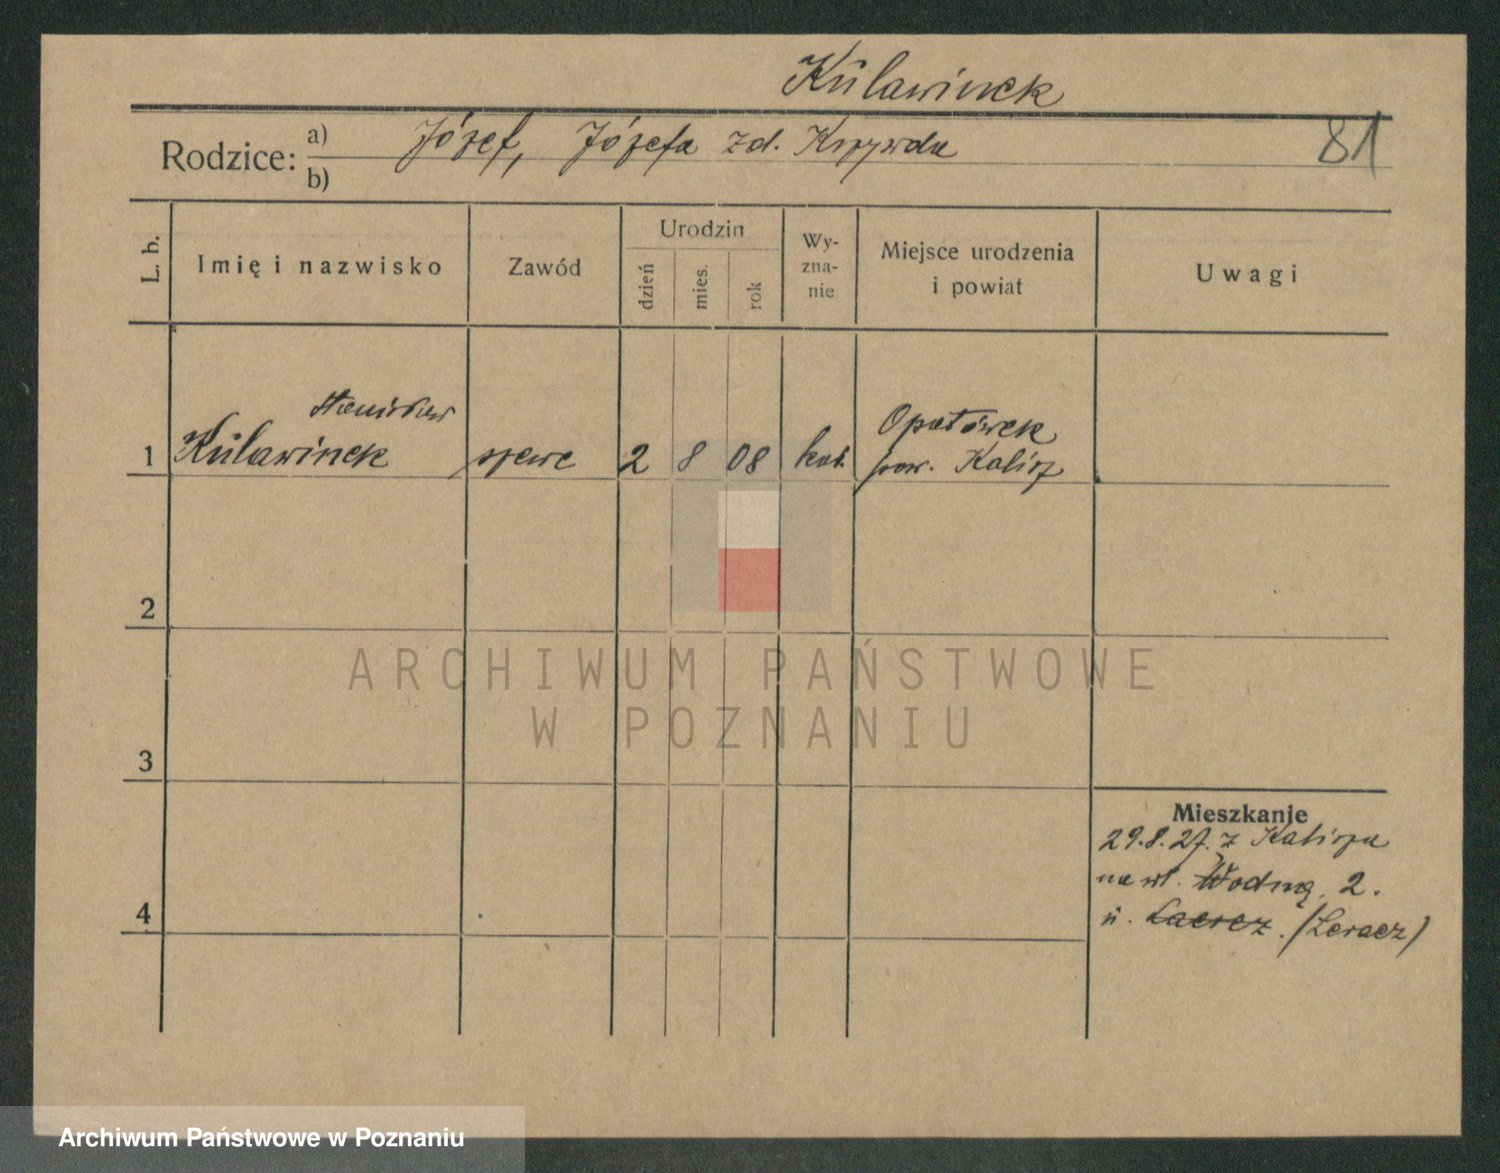 Kulawinek
Rodzice: a) Józef, Józefa zd. Krzywda 81
b)
L. b. Imię i nazwisko Zawód Urodzin dzień mies. rok Wyznanie Miejsce urodzenia i powiat Uwagi
Stanisław Opatówek
1 Kulawinek szewc 2 8 08 kat. pow. Kalisz
2
ARCHIWUM PAŃSTWOWE
W POZNANIU
3
Mieszkanie
29.8.27. z Kalisza
na ul. Wodną 2.
4
u. (Leracz)
Archiwum Państwowe w Poznaniu